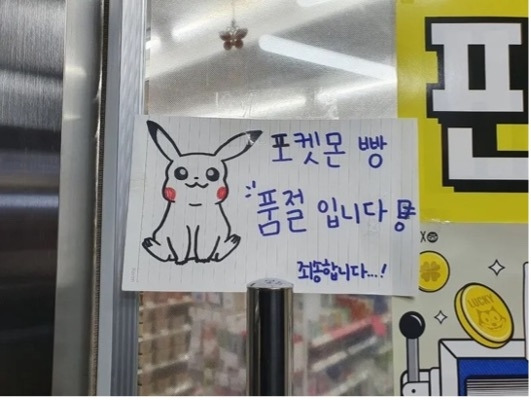 포켓몬 빵
품절 입니다
죄송합니다...!
LUCKY